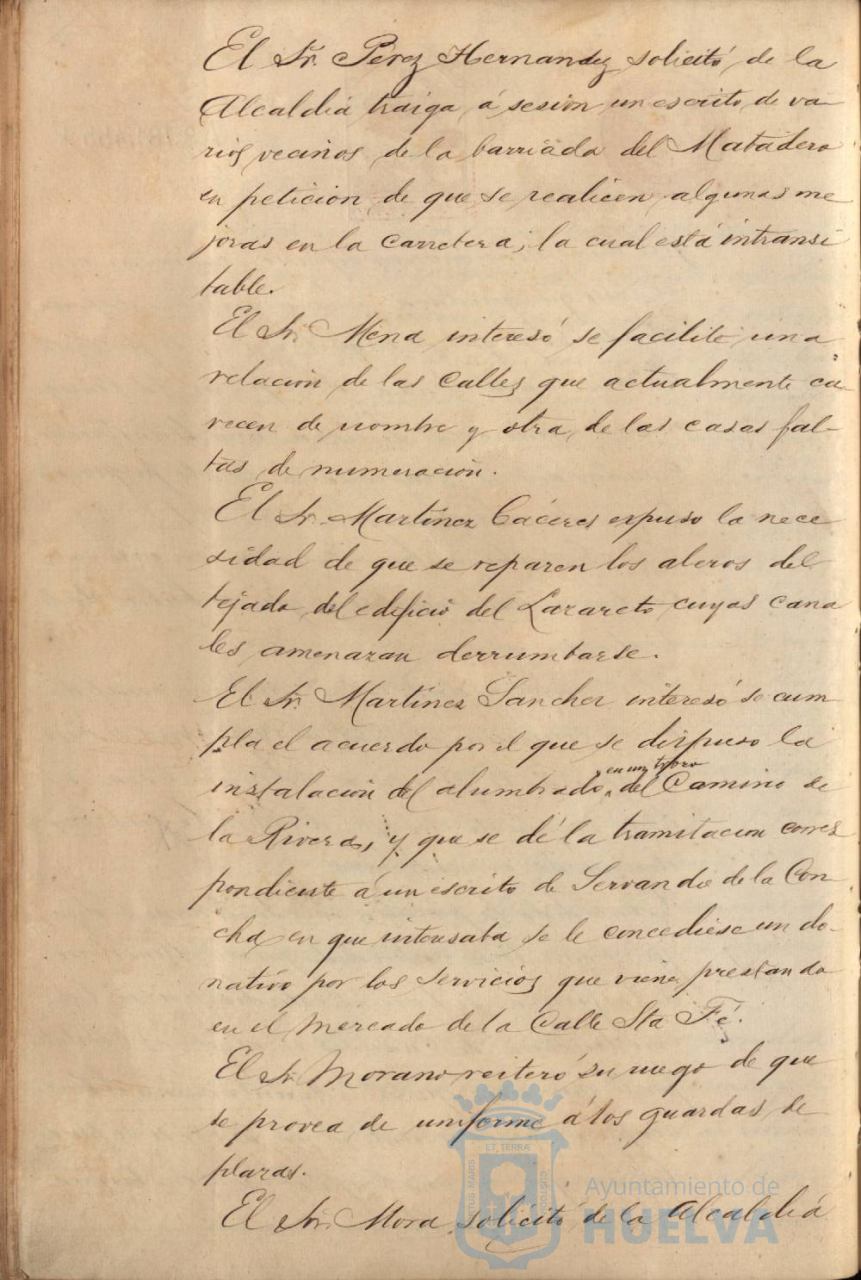 El Sr. Pérez Hernandez solicitó de la
Alcaldia traiga á sesión un escrito de va-
rios vecinos de la barriada del Matadero
en petición de que se realicen algunas me
joras en la carretera, la cual está intransi
table.
El Sr. Mena interesó se facilite una
relación de las calles que actualmente ca-
recen de nombre y otra de las casas fal-
tas de numeración.
El Sr. Martínez Cáceres expuso la nece
sidad de que se reparen los aleros del
tejado del edificio del Lazareto cuyas cana
les amenazan derrumbarse.
El Sr. Martínez Sanchez interesó se cum
pla el acuerdo por el que se dispuso la
en un trozo
instalación del alumbrado del Camino de
la Rivera, y que se dé la tramitación corres
pondiente á un escrito de Servando de la Con
cha en que interesaba se le concediese un do-
nativo por los servicios que viene prestando
en el mercado de la Calle Sta Fé.
El Sr Morano reiteró su ruego de que
se provea de uniforme á los guardas de
plazas.
El Sr. Mora solicitó de la Alcaldiá
Ayuntamiento de
HUELVA